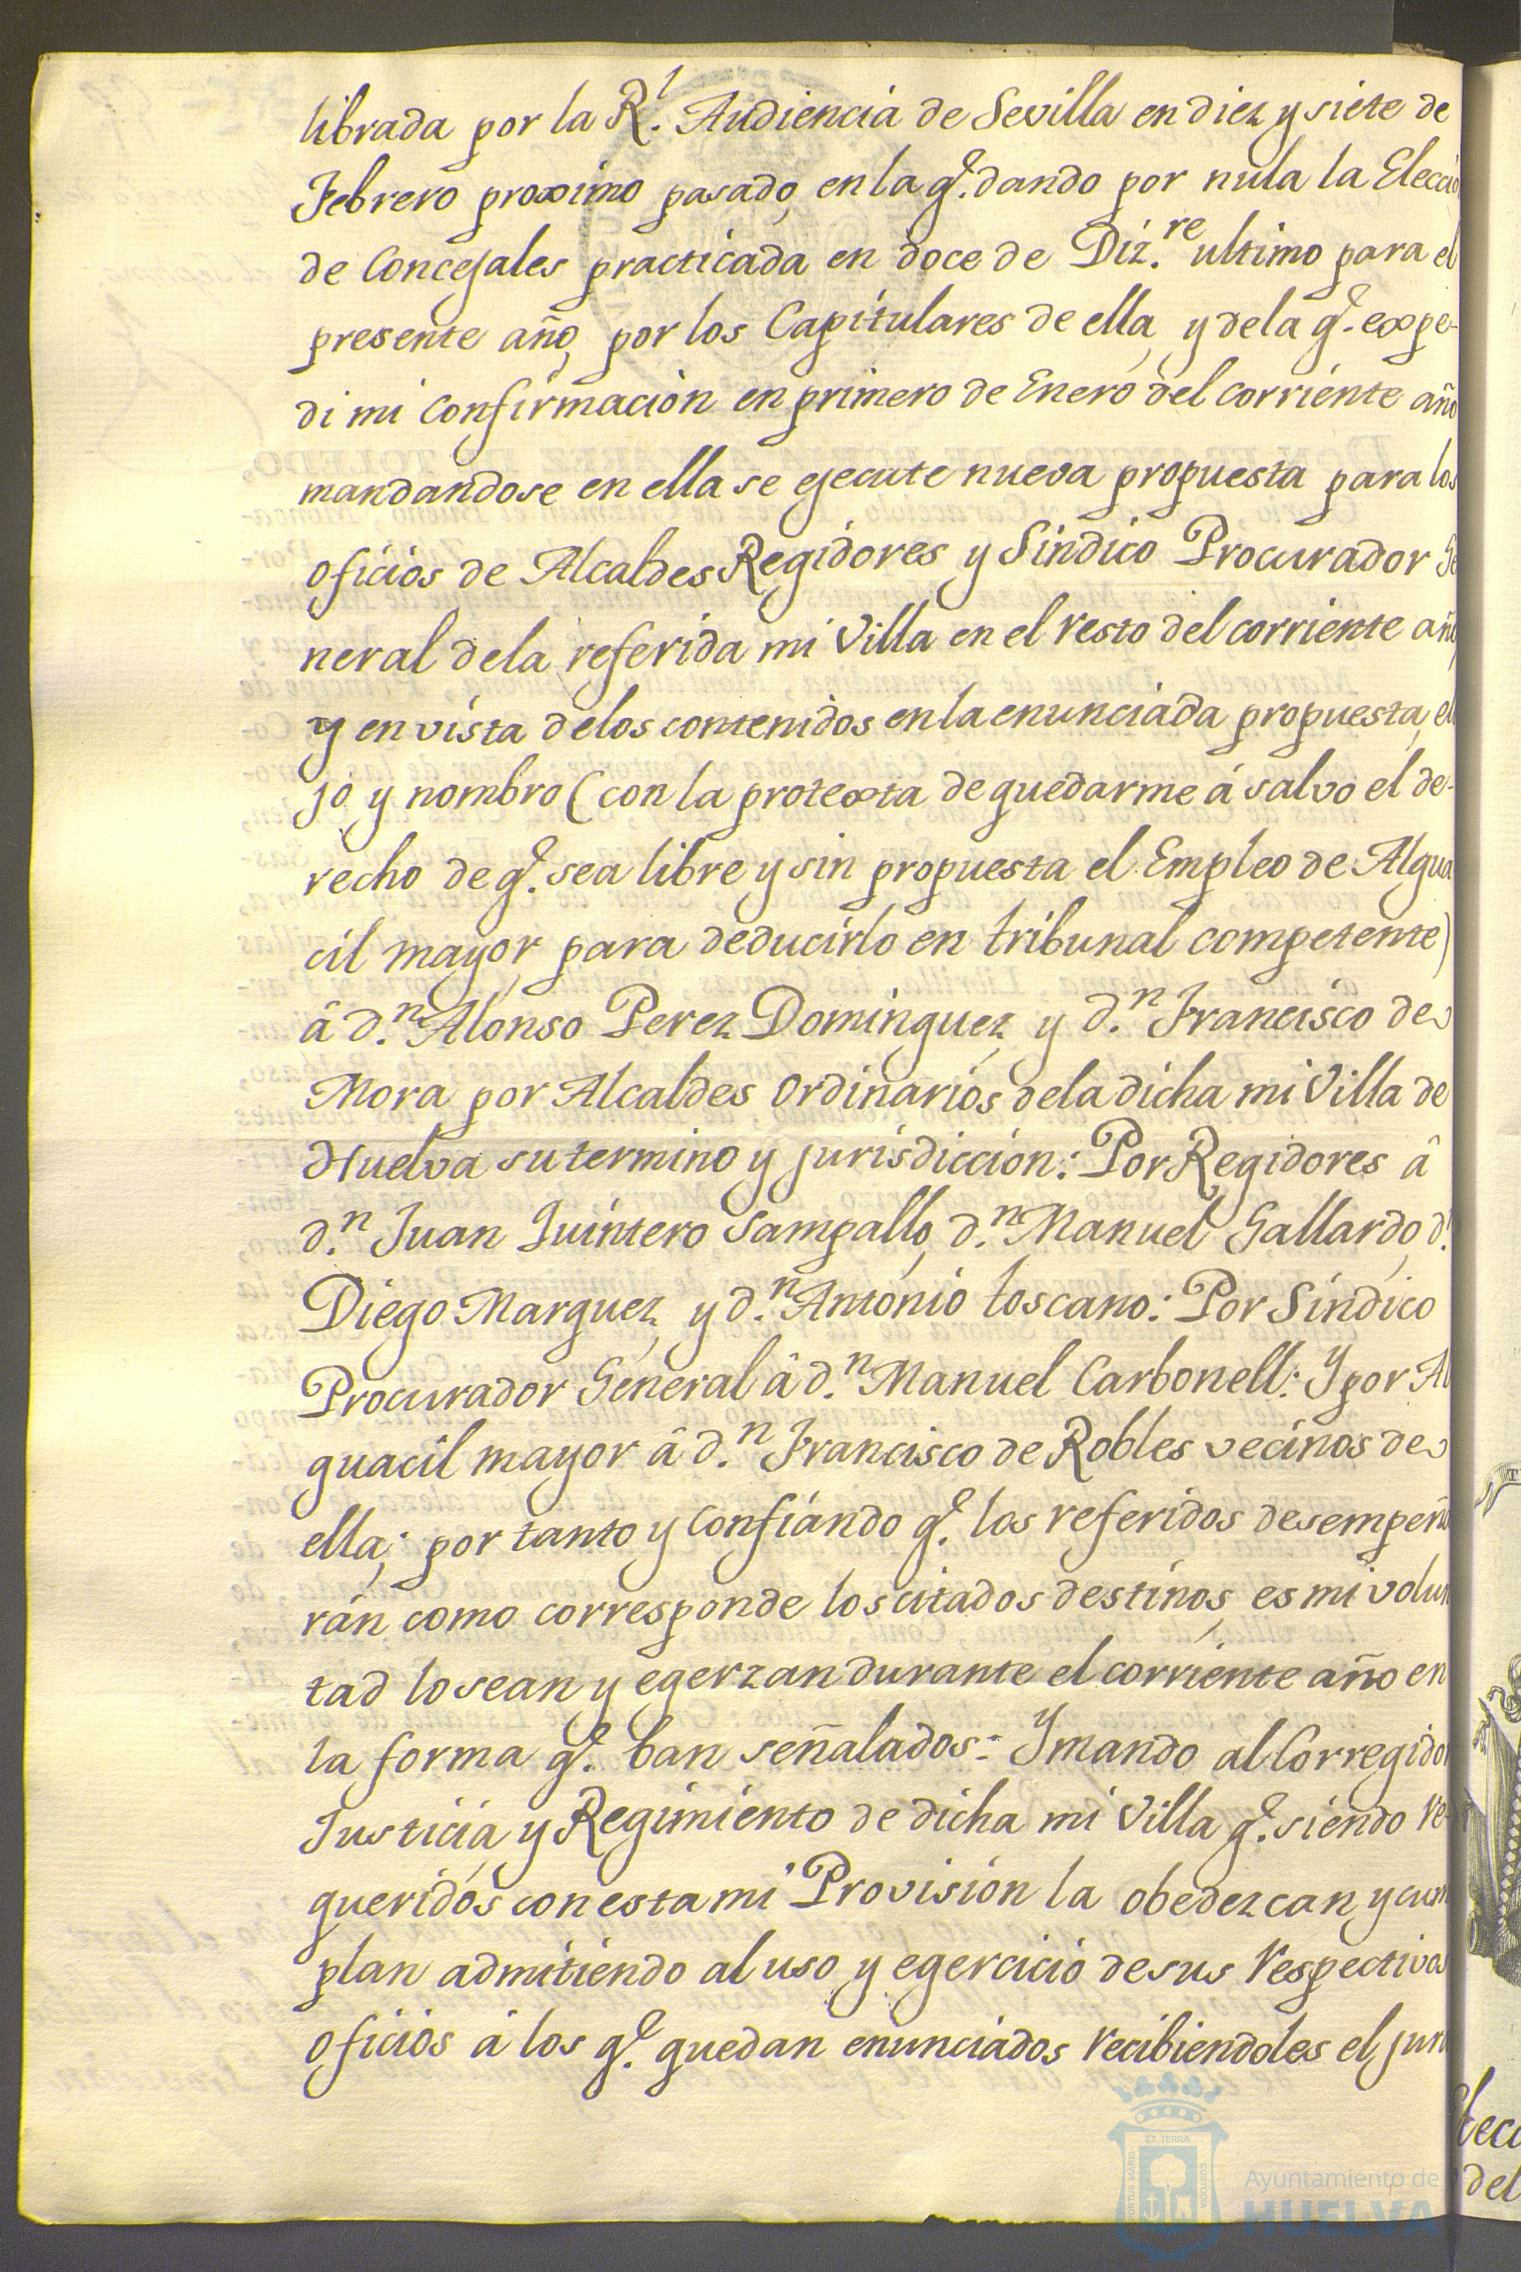 librada por la R.l Audiencia de Sevilla en diez y siete de
Febrero proximo pasado, en la q.e dando por nula la Elecció
de Concejales practicada en doce de Diz.re ultimo para el
presente año, por los Capitulares de ella, y dela q.e expe-
di mi confirmacion en primero de Enero del corriente año
mandandose en ella se ejecute nueva propuesta para los
oficios de Alcaldes Regidores y Sindico Procurador Ge
neral dela referida mi Villa en el resto del corriente año,
y en vista delos contenidos en la enunciada propuesta, eli
jo y nombro (con la protexta de quedarme á salvo el de-
recho de q.e sea libre y sin propuesta el Empleo de Algua
cil mayor, para deducirlo en tribunal competente)
â d.n Alonso Perez Dominguez, y d.n Francisco de
Mora por Alcaldes Ordinarios dela dicha mi Villa de
Huelva su termino y jurisdiccion: Por Regidores â
d.n Juan Quintero Sampallo, d.n Manuel Gallardo, d.n
Diego Marquez, y d.n Antonio toscano: Por Sindico
Procurador General â d.n Manuel Carbonell: Y por Al
guacil mayor â d.n Francisco de Robles vecinos de
ella; por tanto y confiando q.e los referidos desempeña
rán como corresponde los citados destinos, es mi volun
tad lo sean y egerzan durante el corriente año en
la forma q.e ban señalados: Y mando al Corregidor
Justicia, y Regimiento de dicha mi Villa q.e siendo re-
queridos con esta mi Provision la obedezcan, y cum
plan admitiendo al uso y egercicio de sus respectivos
oficios á los q.e quedan enunciados recibiendoles el jura
del
Ayuntamiento de
HUELVA